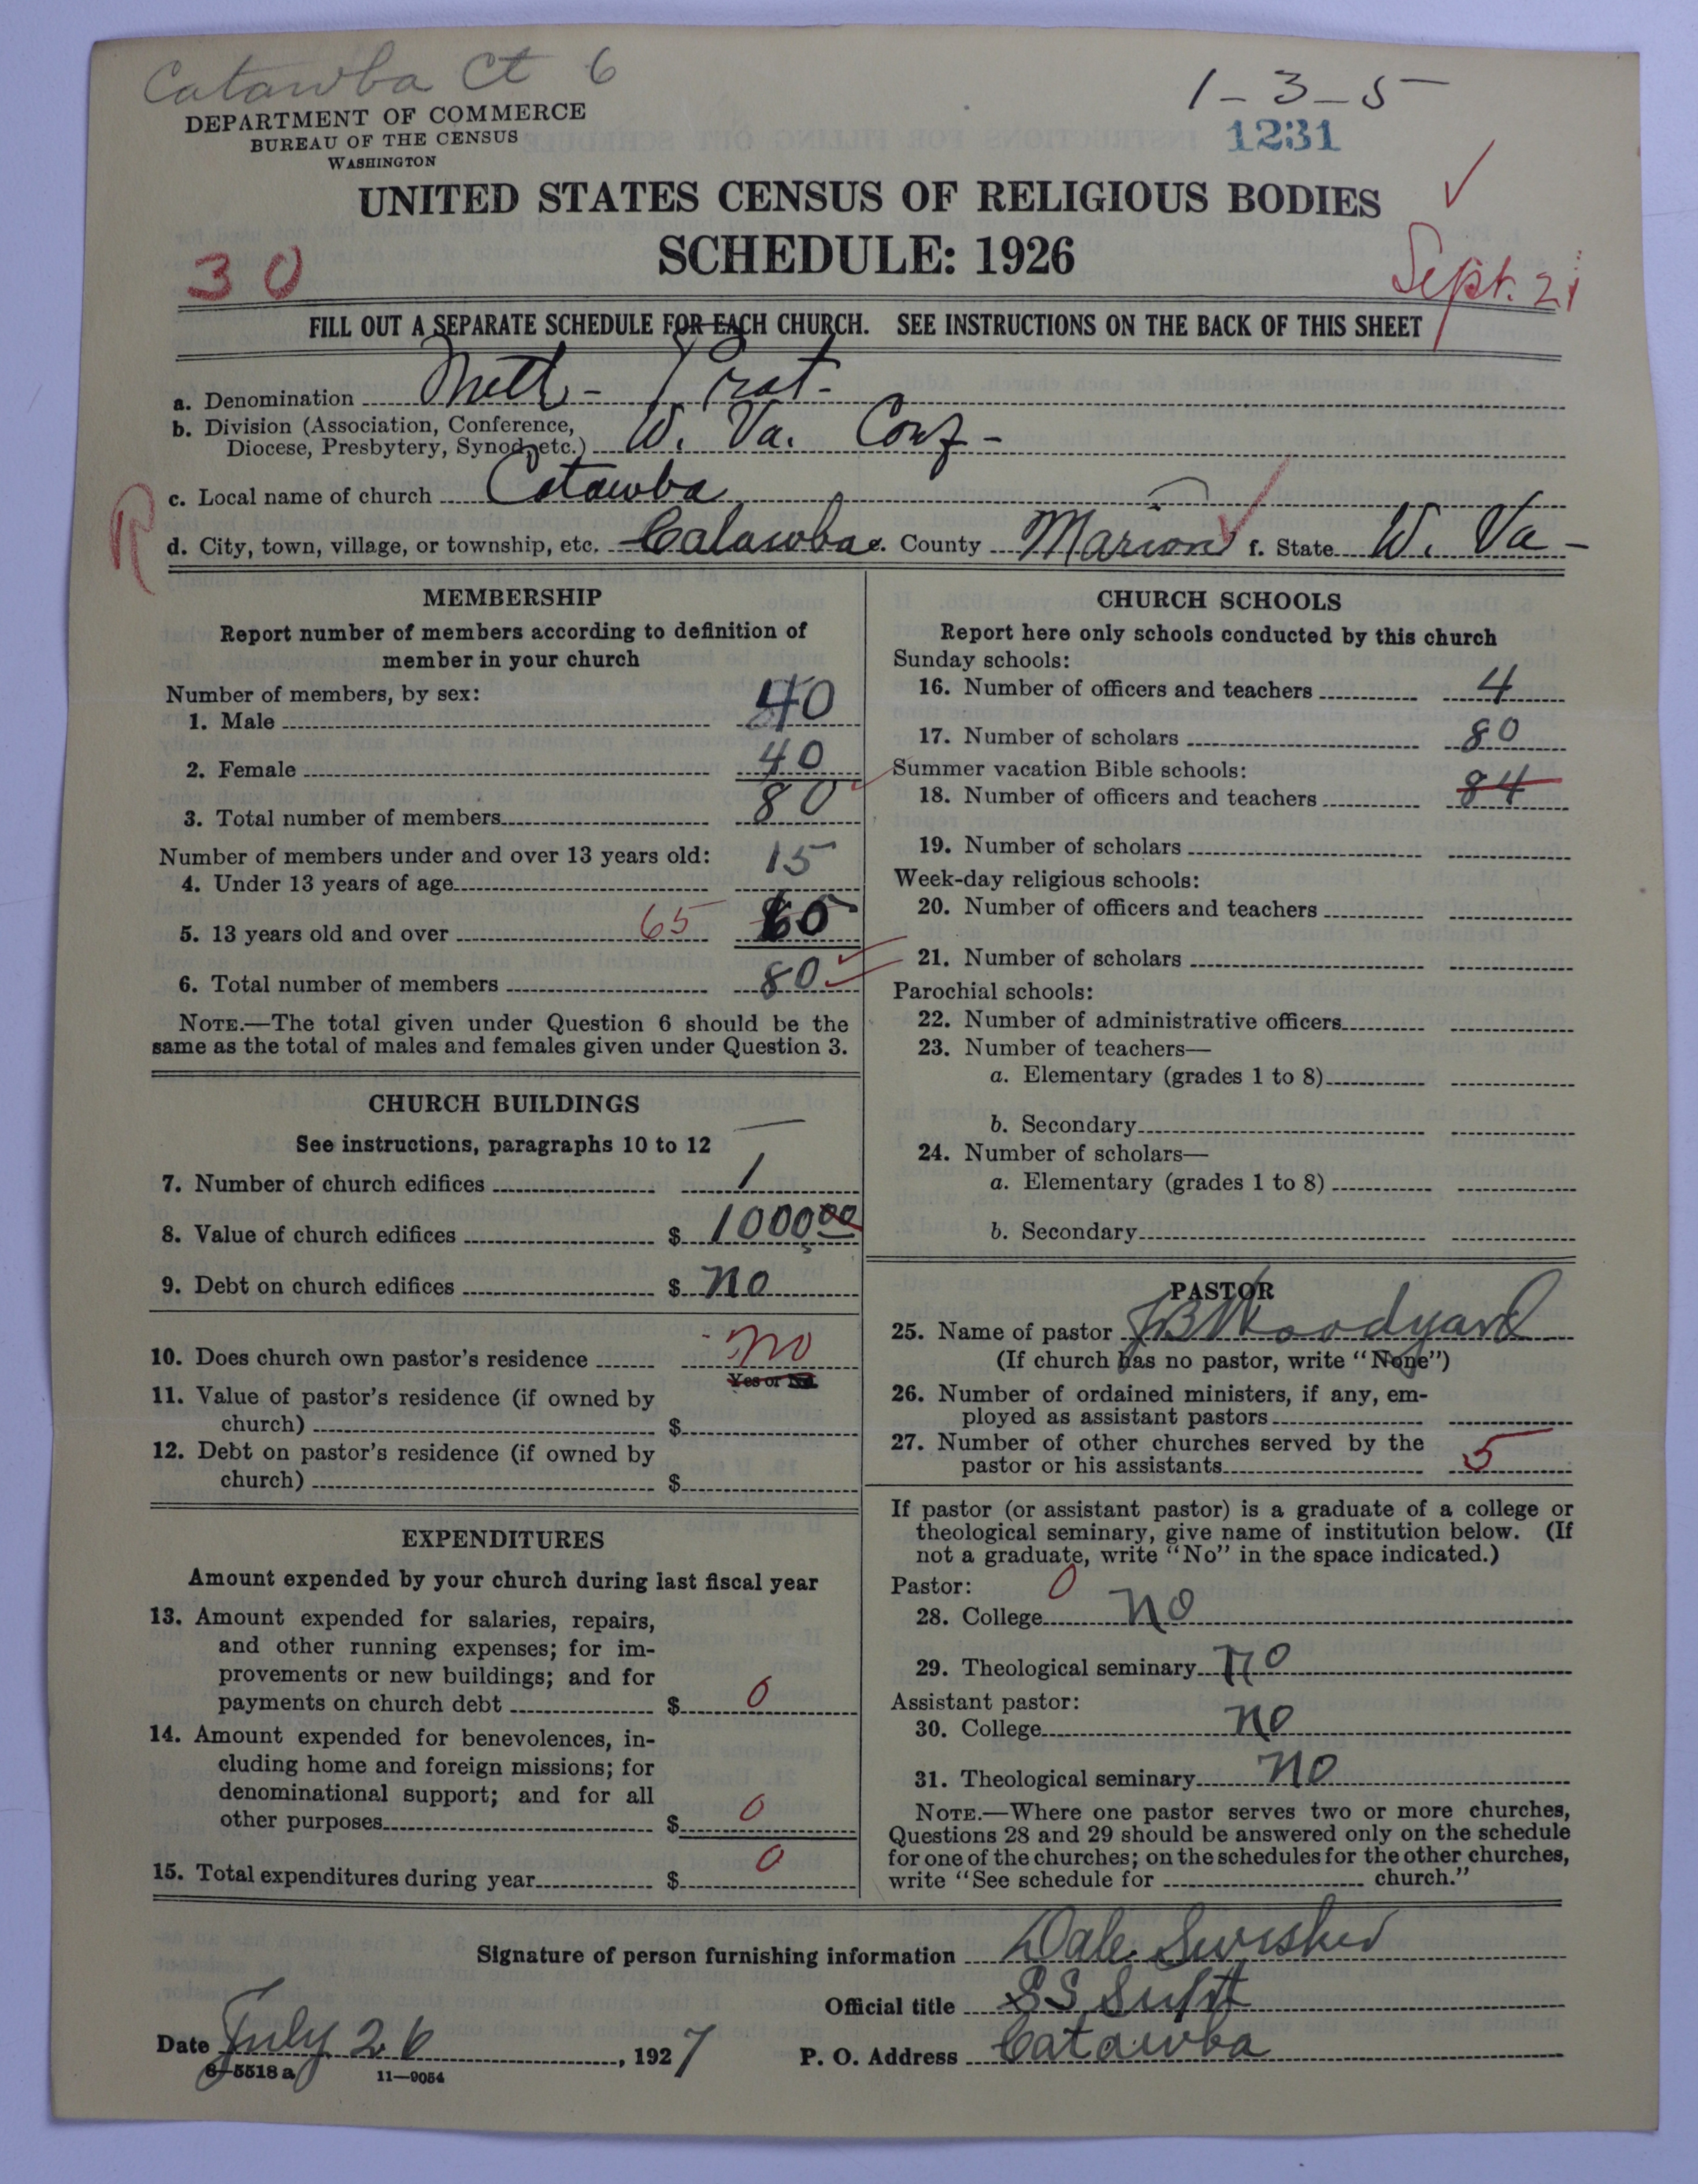 Catawba Ct 6
1-3-5
DEPARTMENT OF COMMERCE
BUREAU OF THE CENSUS
WASHINGTON
1231
UNITED STATES CENSUS OF RELIGIOUS BODIES
SCHEDULE: 1926
30
Sept. 21
FILL OUT A SEPARATE SCHEDULE FOR EACH CHURCH. SEE INSTRUCTIONS ON THE BACK OF THIS SHEET
a. Denomination Meth - Prot-
b. Division (Association, Conference,
Diocese, Presbytery, Synod, etc.) W. Va. Conf-
c. Local name of church Catawba
R
d. City, town, village, or township, etc. Catawba e. County Marion f. State W. Va-
MEMBERSHIP
Report number of members according to definition of
member in your church
Number of members, by sex:
1. Male 40
2. Female 40
3. Total number of members 80
Number of members under and over 13 years old:
4. Under 13 years of age 15
5. 13 years old and over 65 60
6. Total number of members 80
NOTE.—The total given under Question 6 should be the
same as the total of males and females given under Question 3.
CHURCH BUILDINGS
See instructions, paragraphs 10 to 12
7. Number of church edifices 1
8. Value of church edifices $ 1000.00
9. Debt on church edifices $ no
10. Does church own pastor's residence no
Yes or No
11. Value of pastor's residence (if owned by
church) $
12. Debt on pastor's residence (if owned by
church) $
EXPENDITURES
Amount expended by your church during last fiscal year
13. Amount expended for salaries, repairs,
and other running expenses; for im-
provements or new buildings; and for
payments on church debt $ 0
14. Amount expended for benevolences, in-
cluding home and foreign missions; for
denominational support; and for all
other purposes $ 0
15. Total expenditures during year $ 0
CHURCH SCHOOLS
Report here only schools conducted by this church
Sunday schools:
16. Number of officers and teachers 4
17. Number of scholars 80
Summer vacation Bible schools:
18. Number of officers and teachers 84
19. Number of scholars
Week-day religious schools:
20. Number of officers and teachers
21. Number of scholars
Parochial schools:
22. Number of administrative officers
23. Number of teachers—
a. Elementary (grades 1 to 8)
b. Secondary
24. Number of scholars—
a. Elementary (grades 1 to 8)
b. Secondary
PASTOR
25. Name of pastor JB Woodyard
(If church has no pastor, write "None")
26. Number of ordained ministers, if any, em-
ployed as assistant pastors
27. Number of other churches served by the
pastor or his assistants 5
If pastor (or assistant pastor) is a graduate of a college or
theological seminary, give name of institution below. (If
not a graduate, write "No" in the space indicated.)
Pastor: 0
28. College no
29. Theological seminary no
Assistant pastor:
30. College no
31. Theological seminary no
NOTE.—Where one pastor serves two or more churches,
Questions 28 and 29 should be answered only on the schedule
for one of the churches; on the schedules for the other churches,
write "See schedule for church."
Signature of person furnishing information Dale Swisher
Official title SS Supt
Date July 26, 1927
P. O. Address Catawba
8-5518 a 11-9054